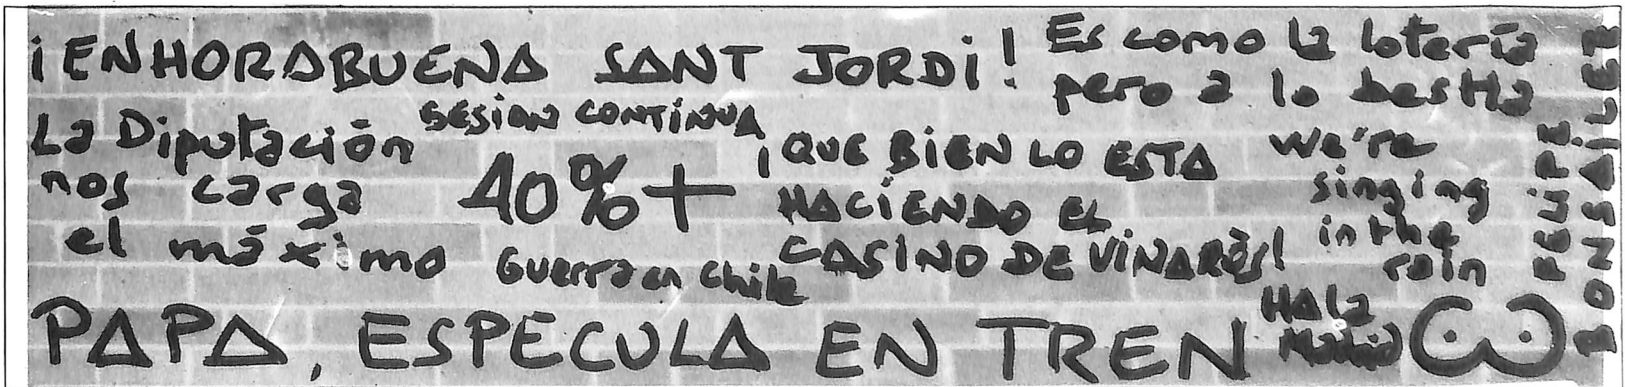 ¡ENHORABUENA SANT JORDI!
Es como la lotería
pero a lo bestia
La Diputación
nos carga
el máximo
SESION CONTÍNUA
40% +
Guerra en Chile
¡QUE BIEN LO ESTA
HACIENDO EL
CASINO DE VINARÒS!
We're
singing
in the
rain
PAPA, ESPECULA EN TREN
HALA
Madrid
BONSAILER